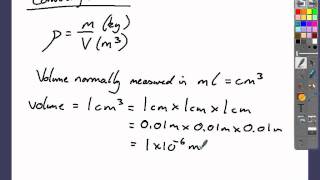 ρ = m (kg)
V (m³)
Volume normally measured in ml = cm³
volume = 1 cm³ = 1cm x 1cm x 1cm
= 0.01m x 0.01m x 0.01m
= 1 x 10⁻⁶ m